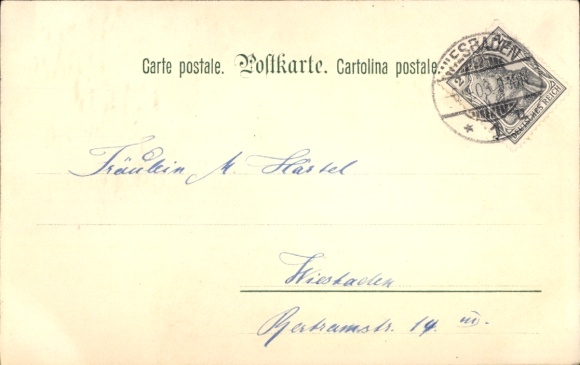 Carte postale. Postkarte. Cartolina postale.
WIESBADEN
DEUTSCHES REICH
Fräulein M. Härtel
Wiesbaden
Bertramstr. 14 III.